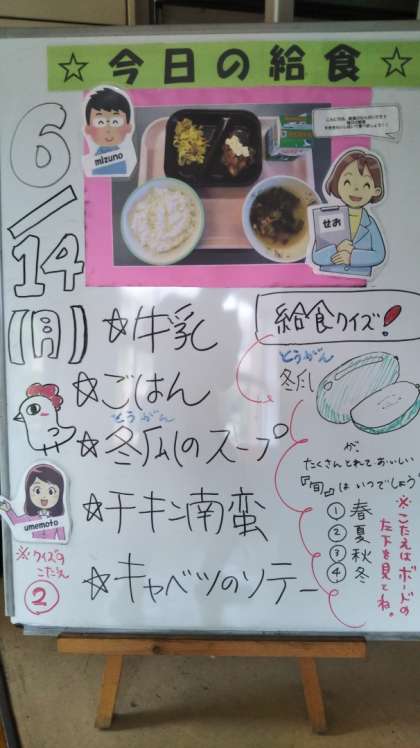 ☆今日の給食☆
mizuno
せお
6/14
(月)
☆牛乳
☆ごはん
とうがん
☆冬瓜のスープ
☆チキン南蛮
☆キャベツのソテー
umemoto
※クイズの
こたえ
②
給食クイズ!
とうがん
冬瓜
が、
たくさんとれておいしい
『旬』はいつでしょう
①春
②夏
③秋
④冬
※こたえはボードの
左下を見てね。